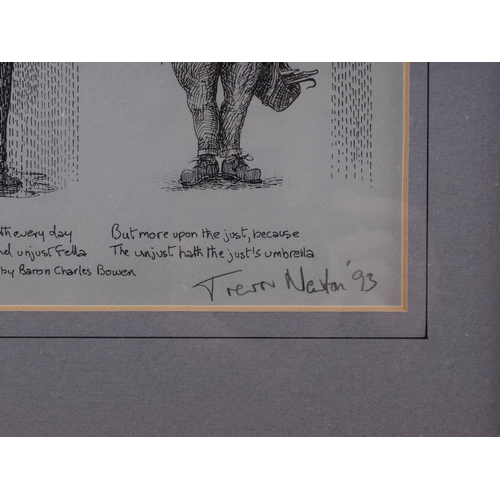 th every day
nd unjust Fella
by Baron Charles Bowen
But more upon the just, because
The unjust hath the just's umbrella
Trevor Newton '93